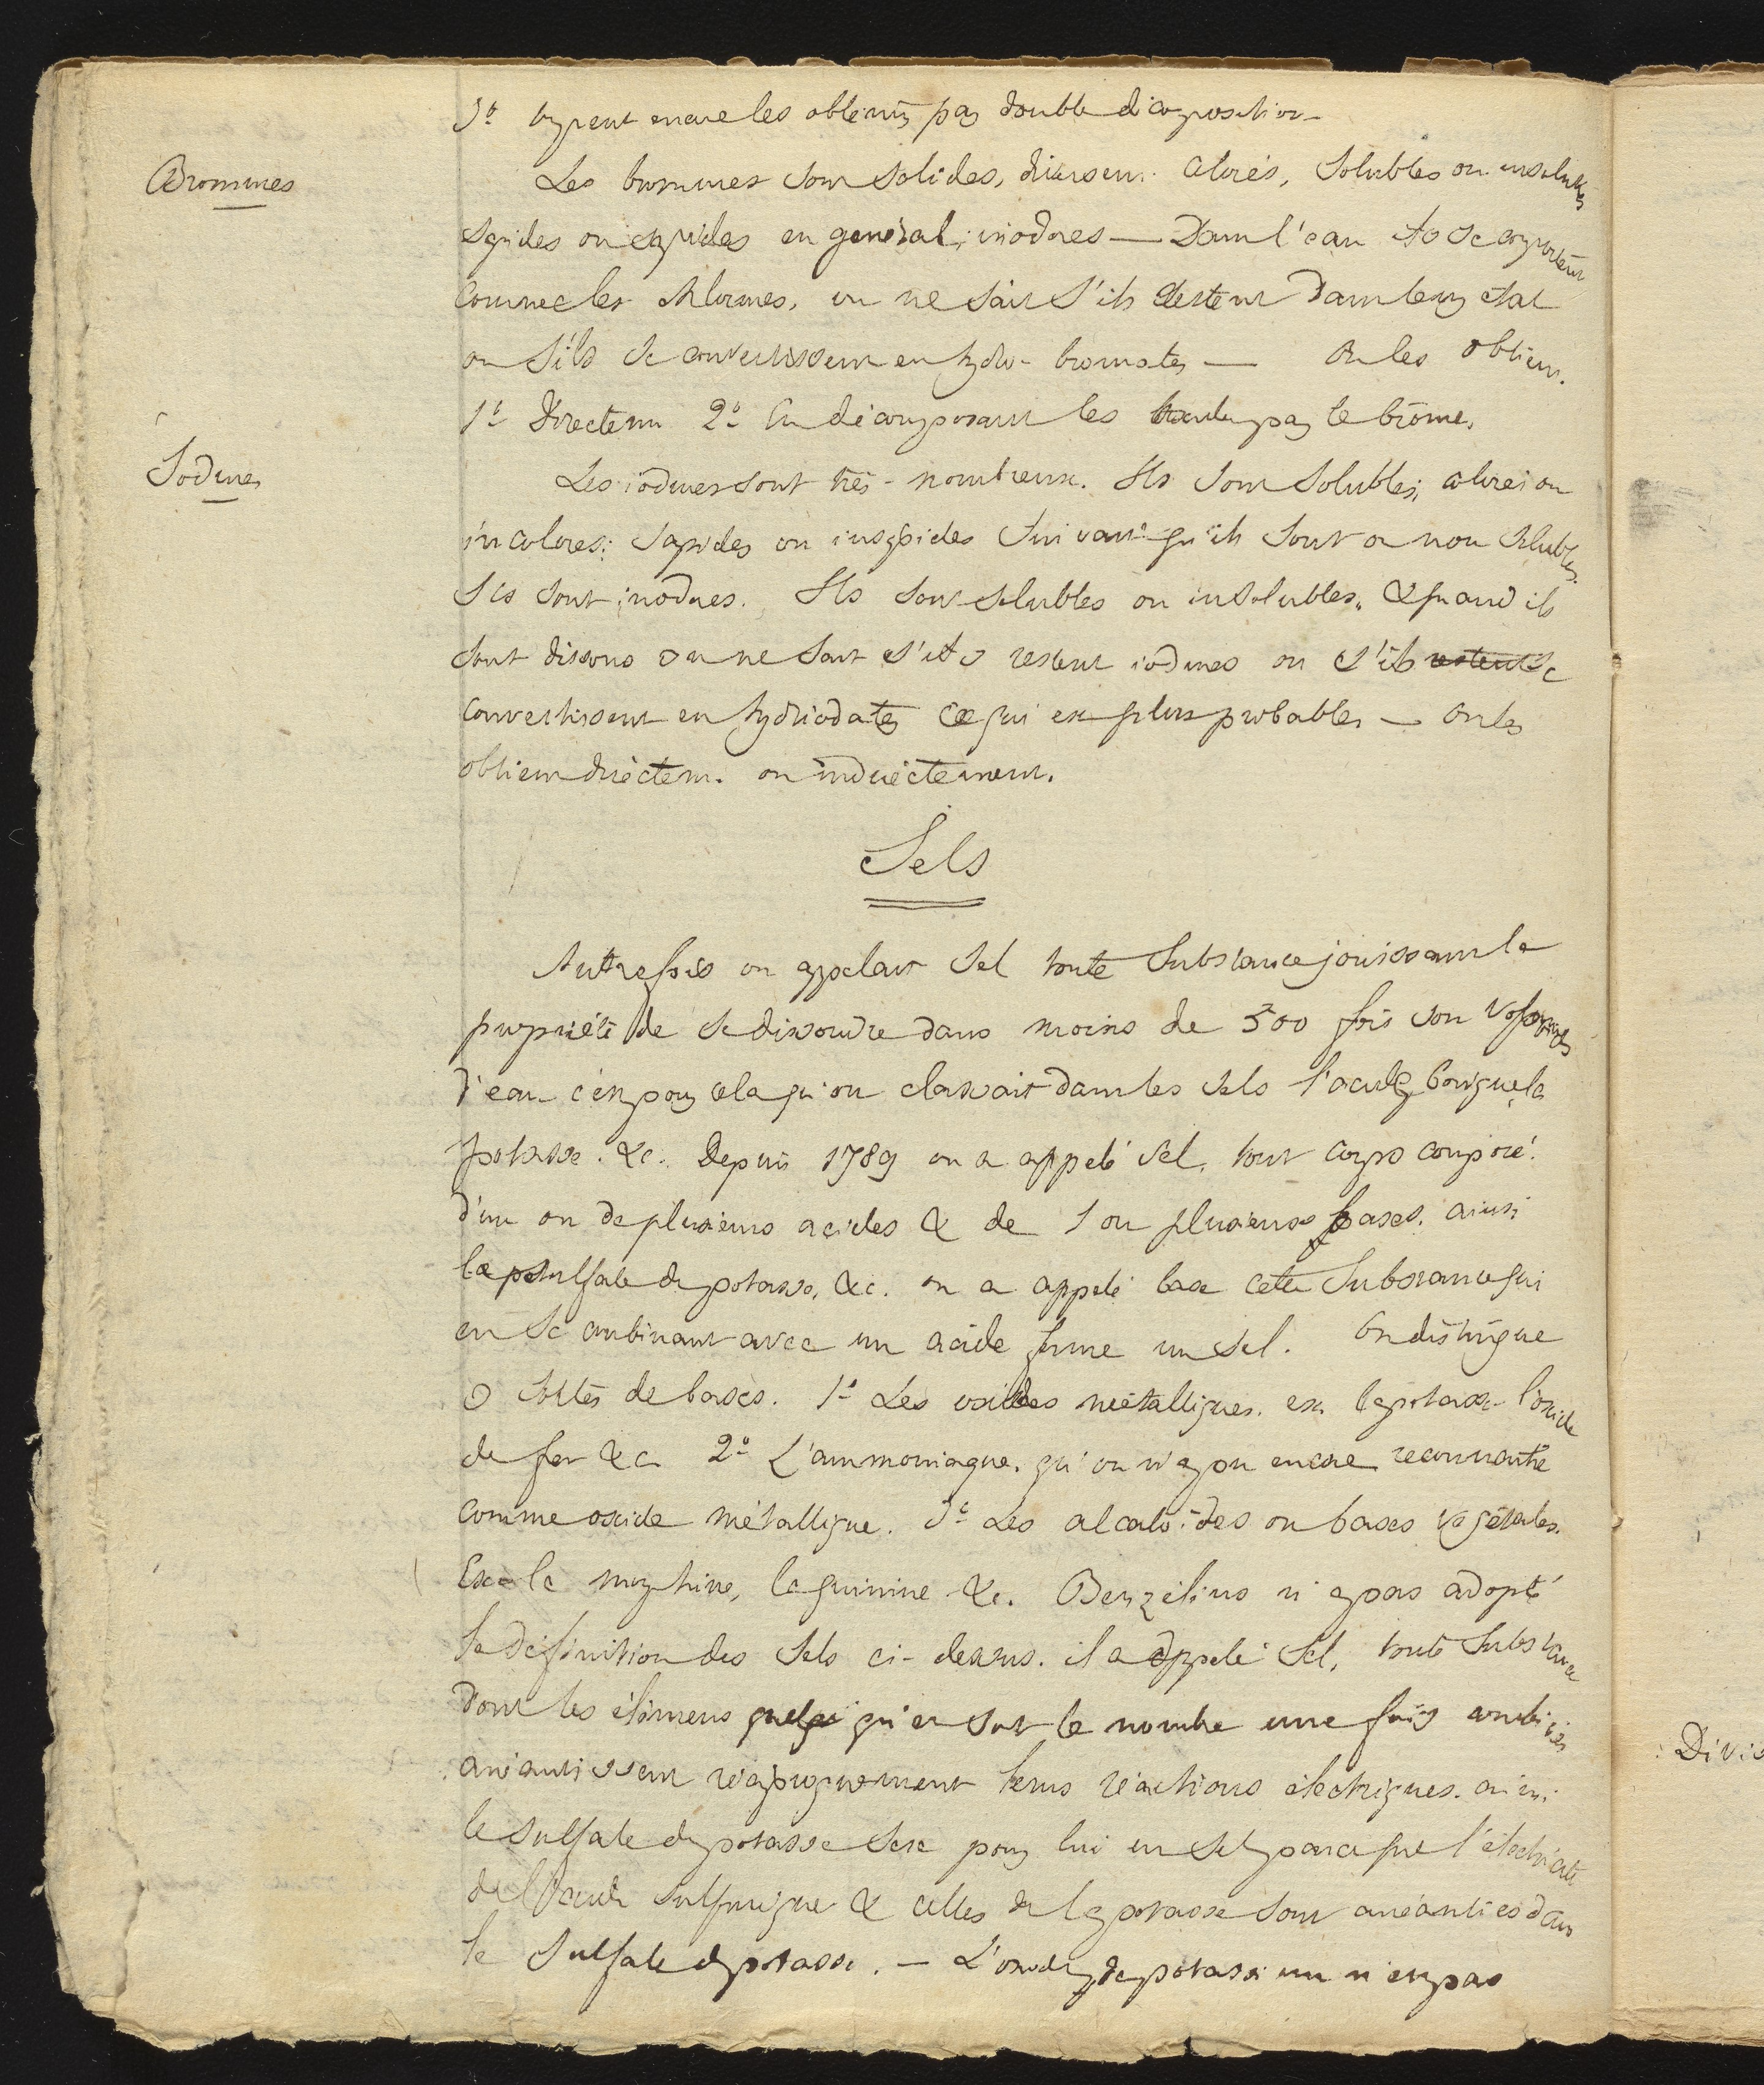 3° on peut encore les obtenir par double décomposition
Bromures
Les bromures sont solides, diversem. colorés, solubles ou insolubles
sapides ou insipides en general; inodores — Dans l'eau ils se comportent
comme les chlorures, on ne sait s'ils restent dans leur état
ou s'ils se convertissent en hydro-bromates — On les obtient.
1° Directem 2° En décomposant les par le brôme.
Iodures
Les iodures sont très-nombreux. Ils sont solubles, colorés ou
incolores; sapides ou insipides suivant qu'ils sont ou non solubles.
Ils sont inodores. Ils sont solubles ou insolubles. & quand ils
sont dissous on ne sait s'ils restent iodures ou s'ils restent se
convertissent en hydriodates ce qui est plus probables — On les
obtient directem. ou indirectement.
Sels
Autrefois on appelait sel toute substance jouissant la
propriété de se dissoudre dans moins de 500 fois son volume
d'eau c'est pour cela qu'on classait dans les sels l'acide borique la
potasse. &c. Depuis 1789 on a appelé sel, tout corps composé
d'un ou de plusieurs acides & de 1 ou plusieurs bases. ainsi
le sulfate de potasse, &c. on a appelé base cette substance qui
en se combinant avec un acide forme un sel. On distingue
3 sortes de bases. 1° Les oxides métalliques. ex. la potasse l'oxide
de fer &c 2° L'ammoniaque. qu'on n'a pu encore reconnaitre
comme oxide métallique. 3° Les alcaloïdes ou bases végétales.
Ex. la morphine, la quinine &c. Berzélius n'a pas adopté
la définition des sels ci-dessus. il a appelé sel, toute substance
dont les élémens quelqu qu'en soit le nombre une fois combinés
anéantissent réciproquement leurs réactions électriques. ainsi
le sulfate de potasse sera pour lui un sel parceque l'électricité
de l'acide sulfurique & celles de la potasse sont anéanties dans
le sulfate de potasse. — L'oxide de potassium n'est pas
Divis